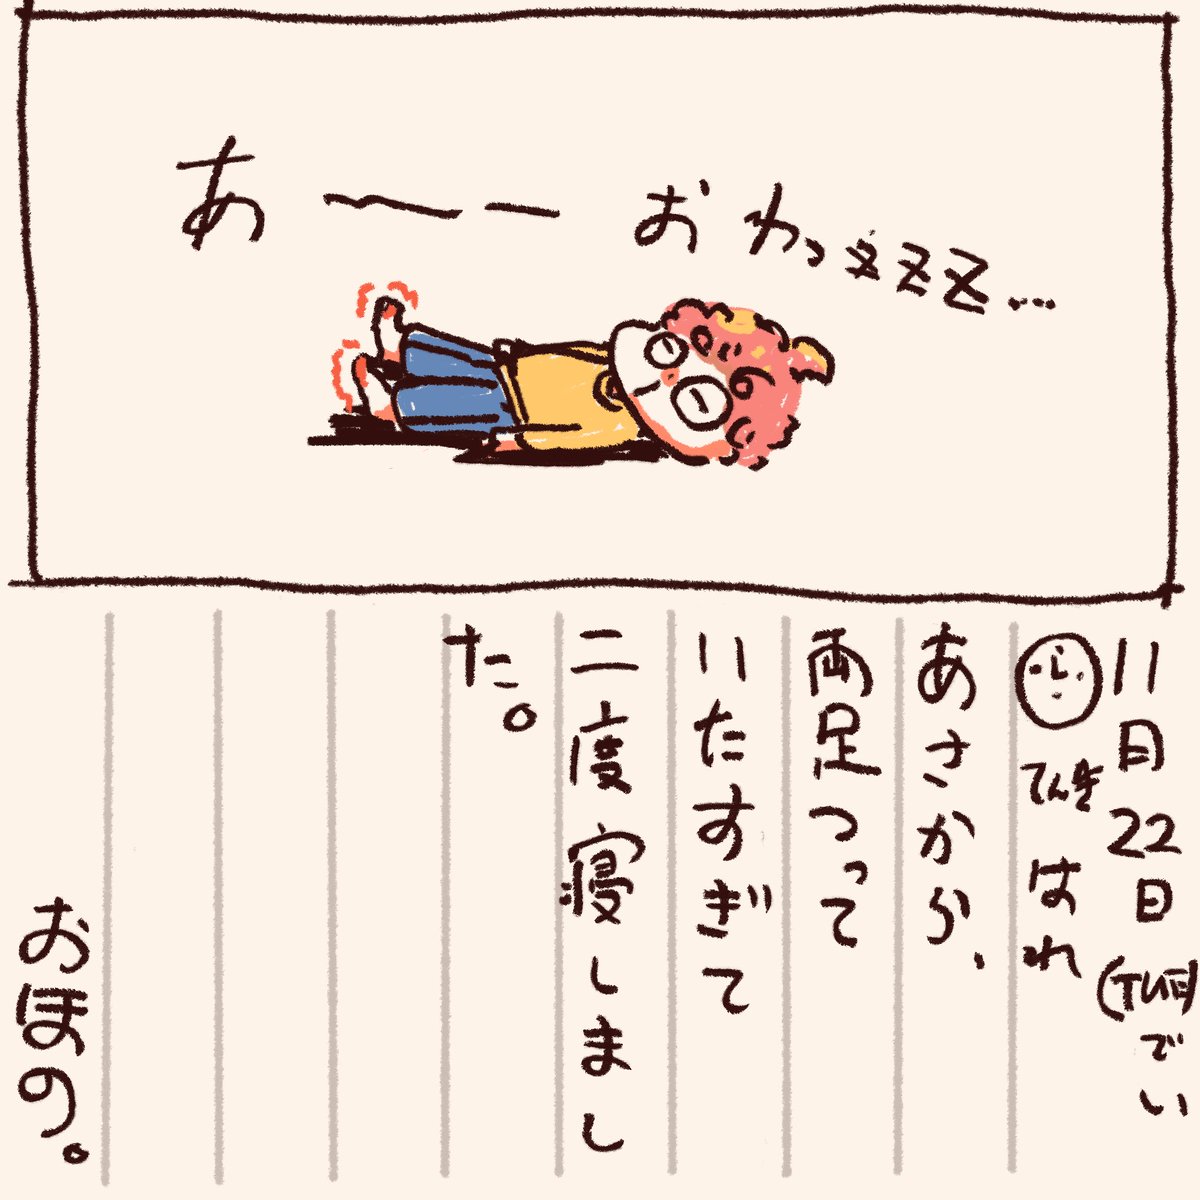 あ〜ーおわっzzz…
11月22日(TUE)でい
てんき はれ
あさから、
両足つって
いたすぎて
二度寝しまし
た。
おほの。